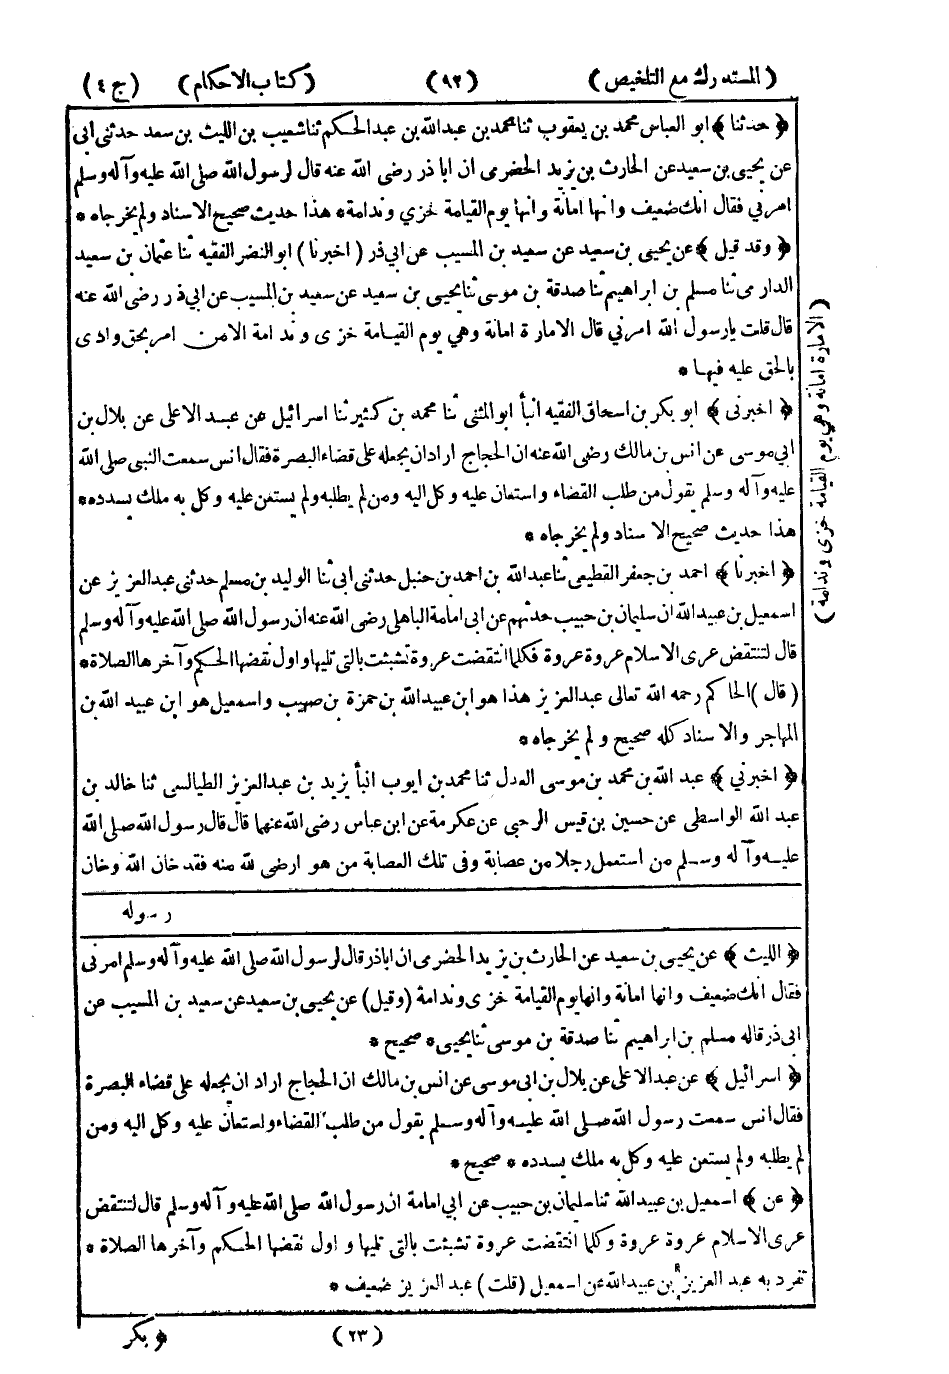 ( المستدرك مع التلخيص ) (٩٢) ( كتاب الاحكام ) ( ج ٤ )
﴿ حدثنا ﴾ ابو العباس محمد بن يعقوب ثنا محمد بن عبدالله بن عبدالحكم ثنا شعيب بن الليث بن سعد حدثنى ابى
عن يحيى بن سعيد عن الحارث بن يزيد الحضرمى ان اباذر رضى الله عنه قال لرسول الله صلى الله عليه وآله وسلم
امرني فقال انك ضعيف وانها امانة وانها يوم القيامة خزي وندامة * هذا حديث صحيح الاسناد ولم يخرجاه *
﴿ وقد قيل ﴾ عن يحيى بن سعيد عن سعيد بن المسيب عن ابي ذر ( اخبرنا ) ابو النضر الفقيه ثنا عثمان بن سعيد
الدارمى ثنا مسلم بن ابراهيم ثنا صدقة بن موسى ثنا يحيى بن سعيد عن سعيد بن المسيب عن ابي ذر رضى الله عنه
قال قلت يا رسول الله امرني قال الامارة امانة وهي يوم القيامة خزى وندامة الامن امر بحق وادى
بالحق عليه فيها *
﴿ اخبرنى ﴾ ابو بكر بن اسحاق الفقيه انبأ ابو المثنى ثنا محمد بن كثير ثنا اسرائيل عن عبد الاعلى عن بلال بن
ابي موسى عن انس بن مالك رضى الله عنه ان الحجاج اراد ان يجعله على قضاء البصرة فقال انس سمعت النبى صلى الله
عليه وآله وسلم يقول من طلب القضاء واستعان عليه وكل اليه ومن لم يطلبه ولم يستعن عليه وكل به ملك يسدده *
هذا حديث صحيح الاسناد ولم يخرجاه *
﴿ اخبرنا ﴾ احمد بن جعفر القطيعى ثنا عبدالله بن احمد بن حنبل حدثنى ابى ثنا الوليد بن مسلم حدثنى عبدالعزيز عن
اسمعيل بن عبيد الله ان سليمان بن حبيب حدثهم عن ابى امامة الباهلى رضى الله عنه ان رسول الله صلى الله عليه وآله وسلم
قال لتنتقض عرى الاسلام عروة عروة فكلما انتقضت عروة تشبثت بالتى تليها واول نقضها الحكم وآخرها الصلاة *
( قال ) الحاكم رحمه الله تعالى عبدالعزيز هذا هو ابن عبيدالله بن حمزة بن صهيب واسمعيل هو ابن عبيد الله بن
المهاجر والاسناد كله صحيح ولم يخرجاه *
﴿ اخبرني ﴾ عبد الله بن محمد بن موسى العدل ثنا محمد بن ايوب انبأ يزيد بن عبدالعزيز الطيالسى ثنا خالد بن
عبد الله الواسطى عن حسين بن قيس الرحبى عن عكرمة عن ابن عباس رضى الله عنهما قال قال رسول الله صلى الله
عليه وآله وسلم من استعمل رجلا من عصابة وفى تلك العصابة من هو ارضى لله منه فقد خان الله وخان
رسوله
﴿ الليث ﴾ عن يحيى بن سعيد عن الحارث بن يزيد الحضرمى ان اباذر قال لرسول الله صلى الله عليه وآله وسلم امرنى
فقال انك ضعيف وانها امانة وانها يوم القيامة خزى وندامة (وقيل) عن يحيى بن سعيد عن سعيد بن المسيب عن
ابى ذر قاله مسلم بن ابراهيم ثنا صدقة بن موسى ثنا يحيى * صحيح *
﴿ اسرائيل ﴾ عن عبدالاعلى عن بلال بن ابى موسى عن انس بن مالك ان الحجاج اراد ان يجعله على قضاء البصرة
فقال انس سمعت رسول الله صلى الله عليه وآله وسلم يقول من طلب القضاء واستعان عليه وكل اليه ومن
لم يطلبه ولم يستعن عليه وكل به ملك يسدده * صحيح *
﴿ عن ﴾ اسمعيل بن عبيد الله ثنا سليمان بن حبيب عن ابي امامة ان رسول الله صلى الله عليه وآله وسلم قال لتنتقض
عرى الاسلام عروة عروة وكلما انتقضت عروة تشبثت بالتى تليها واول نقضها الحكم وآخرها الصلاة *
تفرد به عبد العزيز بن عبيد الله عن اسمعيل (قلت) عبد العزيز ضعيف *
(٢٣) ﴿ بكر
( الامارة امانة وهي يوم القيامة خزى وندامة )